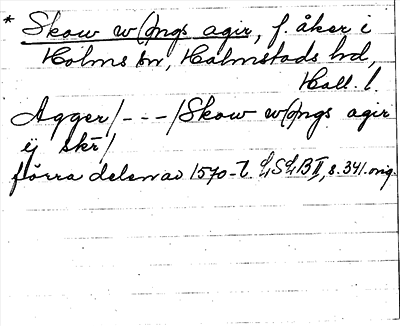 * Skow w(ngs agir, f. åker i
Holms sn, Halmstads hd,
Hall. l.
Agger/---/Skow w(ngs agir
ej skr/
förra delen av 1570-t. LSLB II, s. 341. orig.